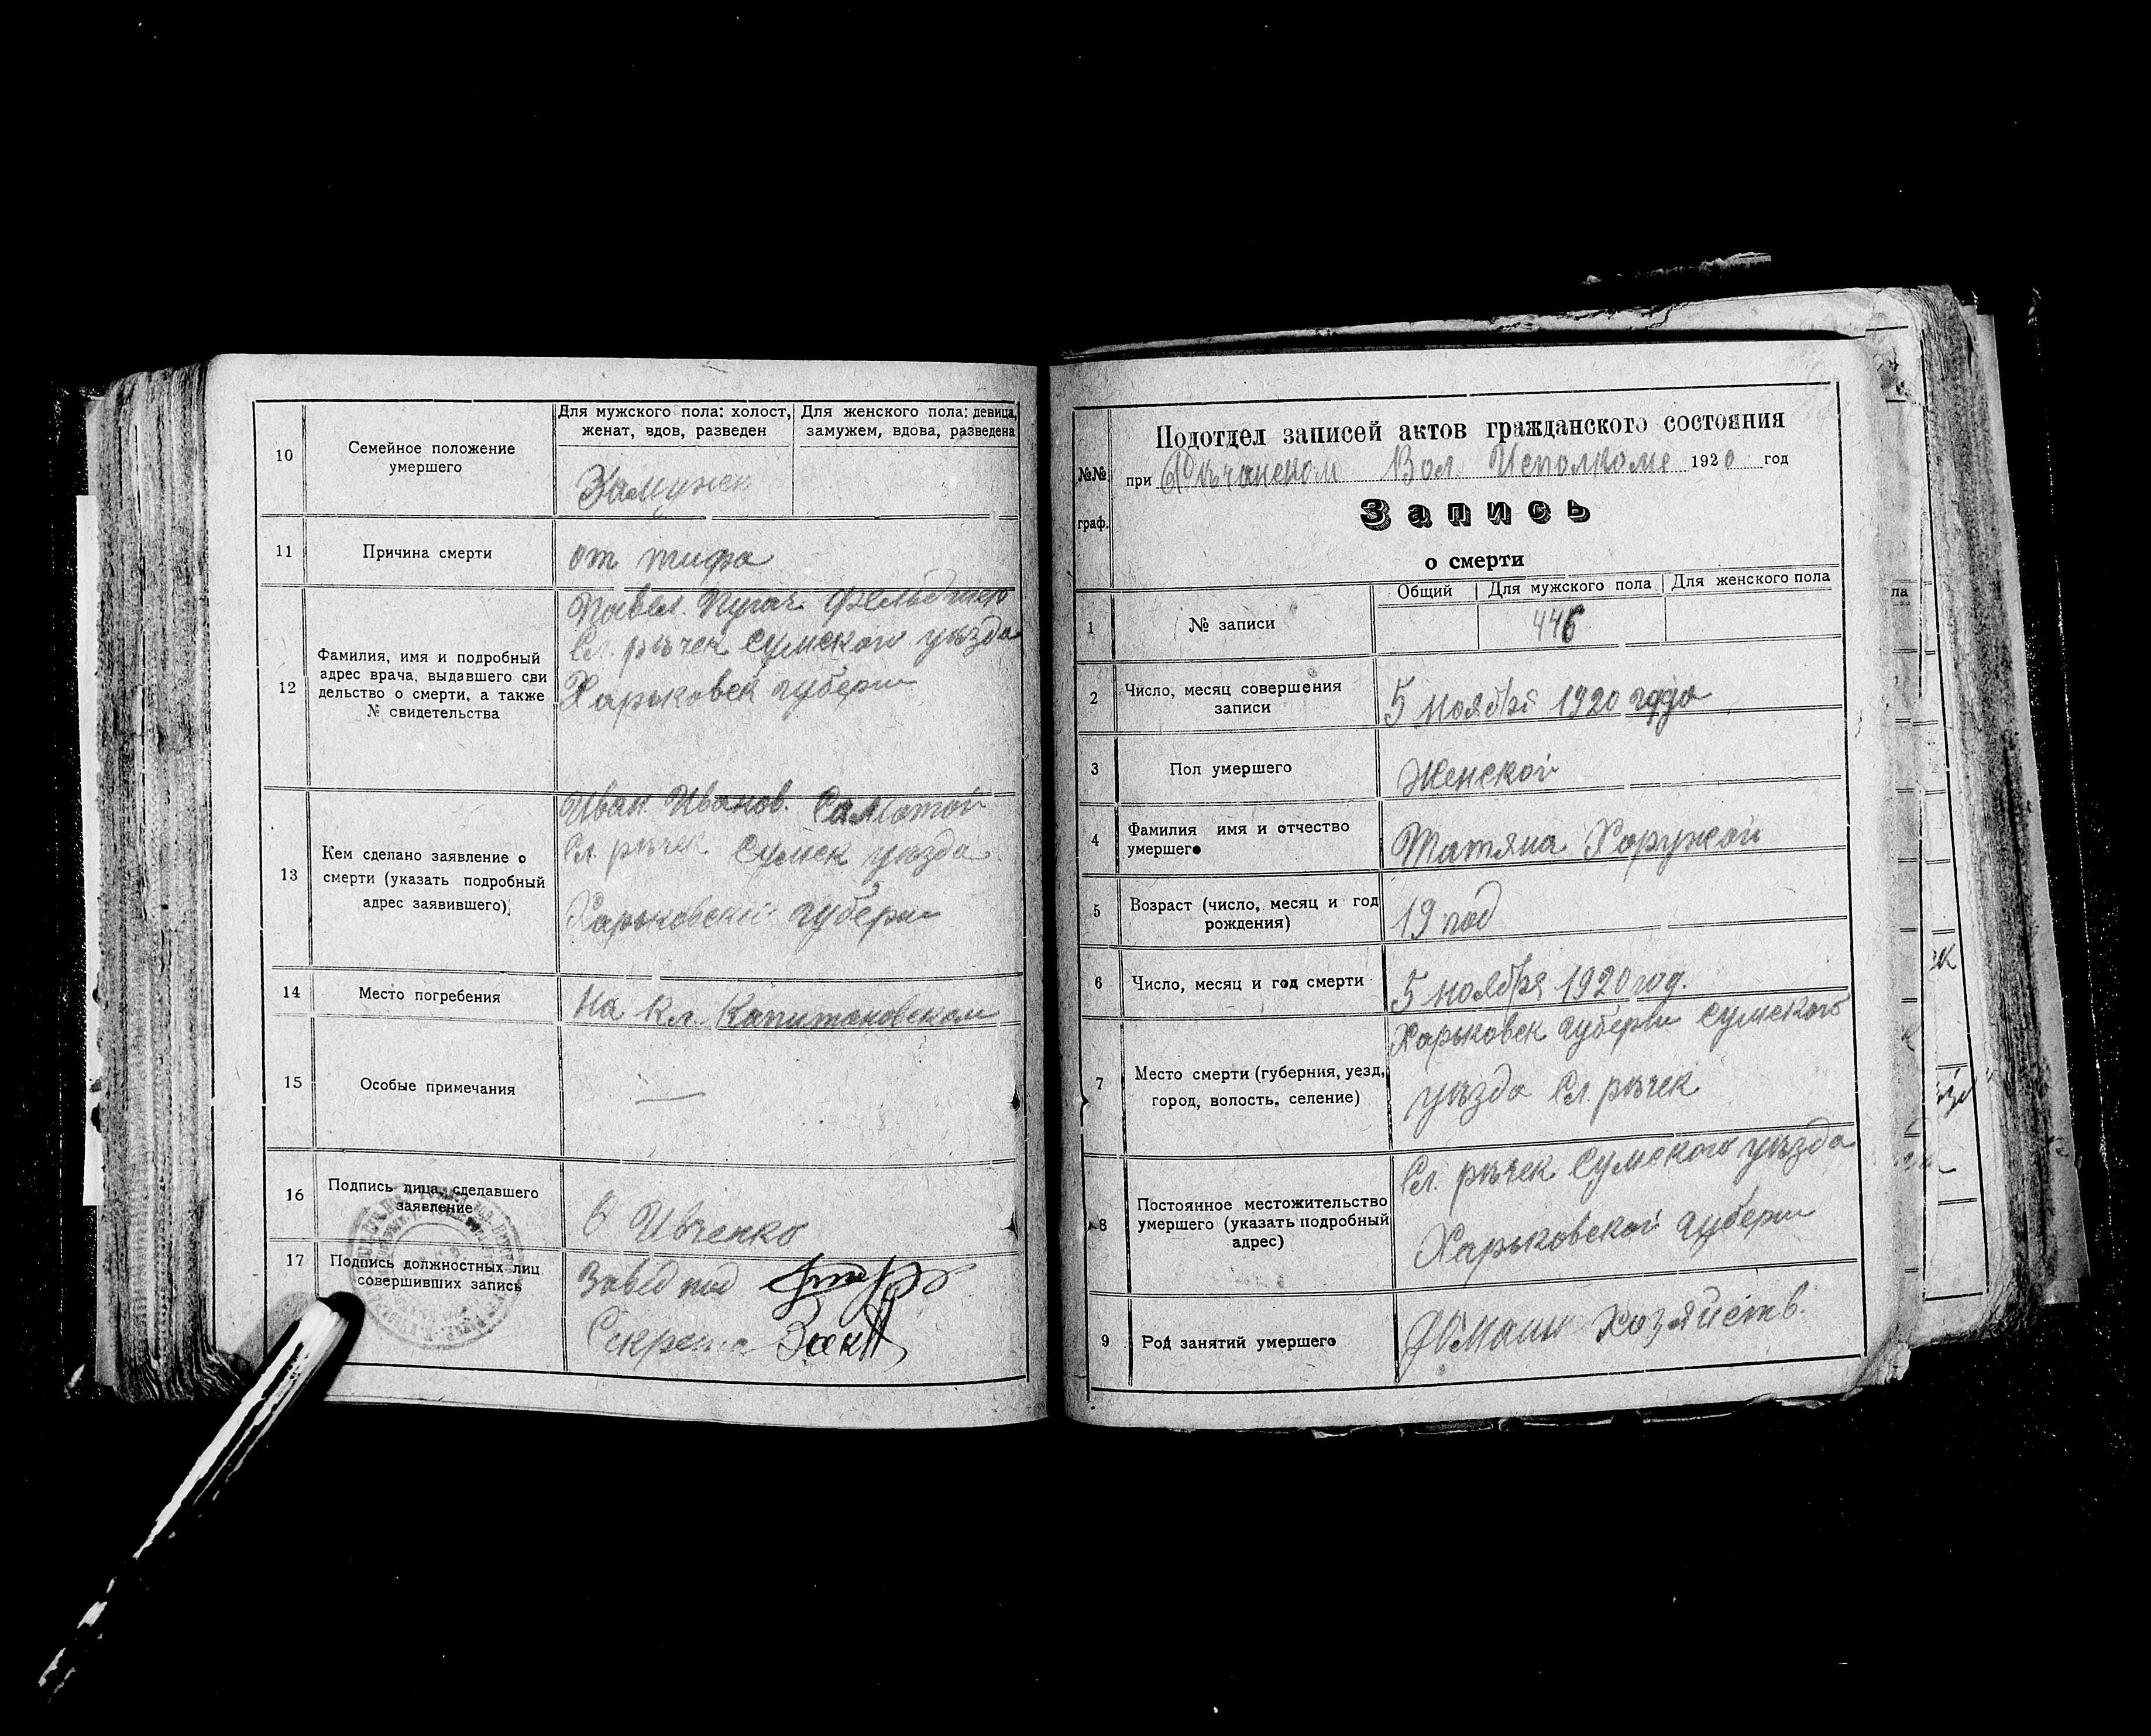 10
Семейное положение
умершего
Для мужского пола: холост,
женат, вдов, разведен
Для женского пола: девица,
замужем, вдова, разведена
Замужем
11
Причина смерти
от тифа
12
Фамилия, имя и подробный
адрес врача, выдавшего сви
дельство о смерти, а также
№ свидетельства
Павел. Пугач Фельдшер
Сл. рѣчек Сумского уѣзда
Харьковск губерни
13
Кем сделано заявление о
смерти (указать подробный
адрес заявившего)
Иван Иванов. Самотой
Сл. рѣчек Сумск уѣзда
Харьковской губерни
14
Место погребения
на кл. Капитановском
15
Особые примечания
—
16
Подпись лица, сделавшего
заявление
Ивченко
17
Подпись должностных лиц
совершивших запись
Завед под
Секрета
№№
граф.
Подотдел записей актов гражданского состояния
при Рѣчанском Вол. Исполкоме 1920 год
Запись
о смерти
Общий
Для мужского пола
Для женского пола
1
№ записи
446
2
Число, месяц совершения
записи
5 ноября 1920 года
3
Пол умершего
Женской
4
Фамилия имя и отчество
умершего
Татяна Хоружой
5
Возраст (число, месяц и год
рождения)
19 год
6
Число, месяц и год смерти
5 ноября 1920 год.
7
Место смерти (губерния, уезд,
город, волость, селение)
Харьковск губерни Сумского
уѣзда Сл. рѣчек
8
Постоянное местожительство
умершего (указать подробный
адрес)
Сл. рѣчек Сумского уѣзда
Харьковской губерни
9
Род занятий умершего
Домаш хозяйств.